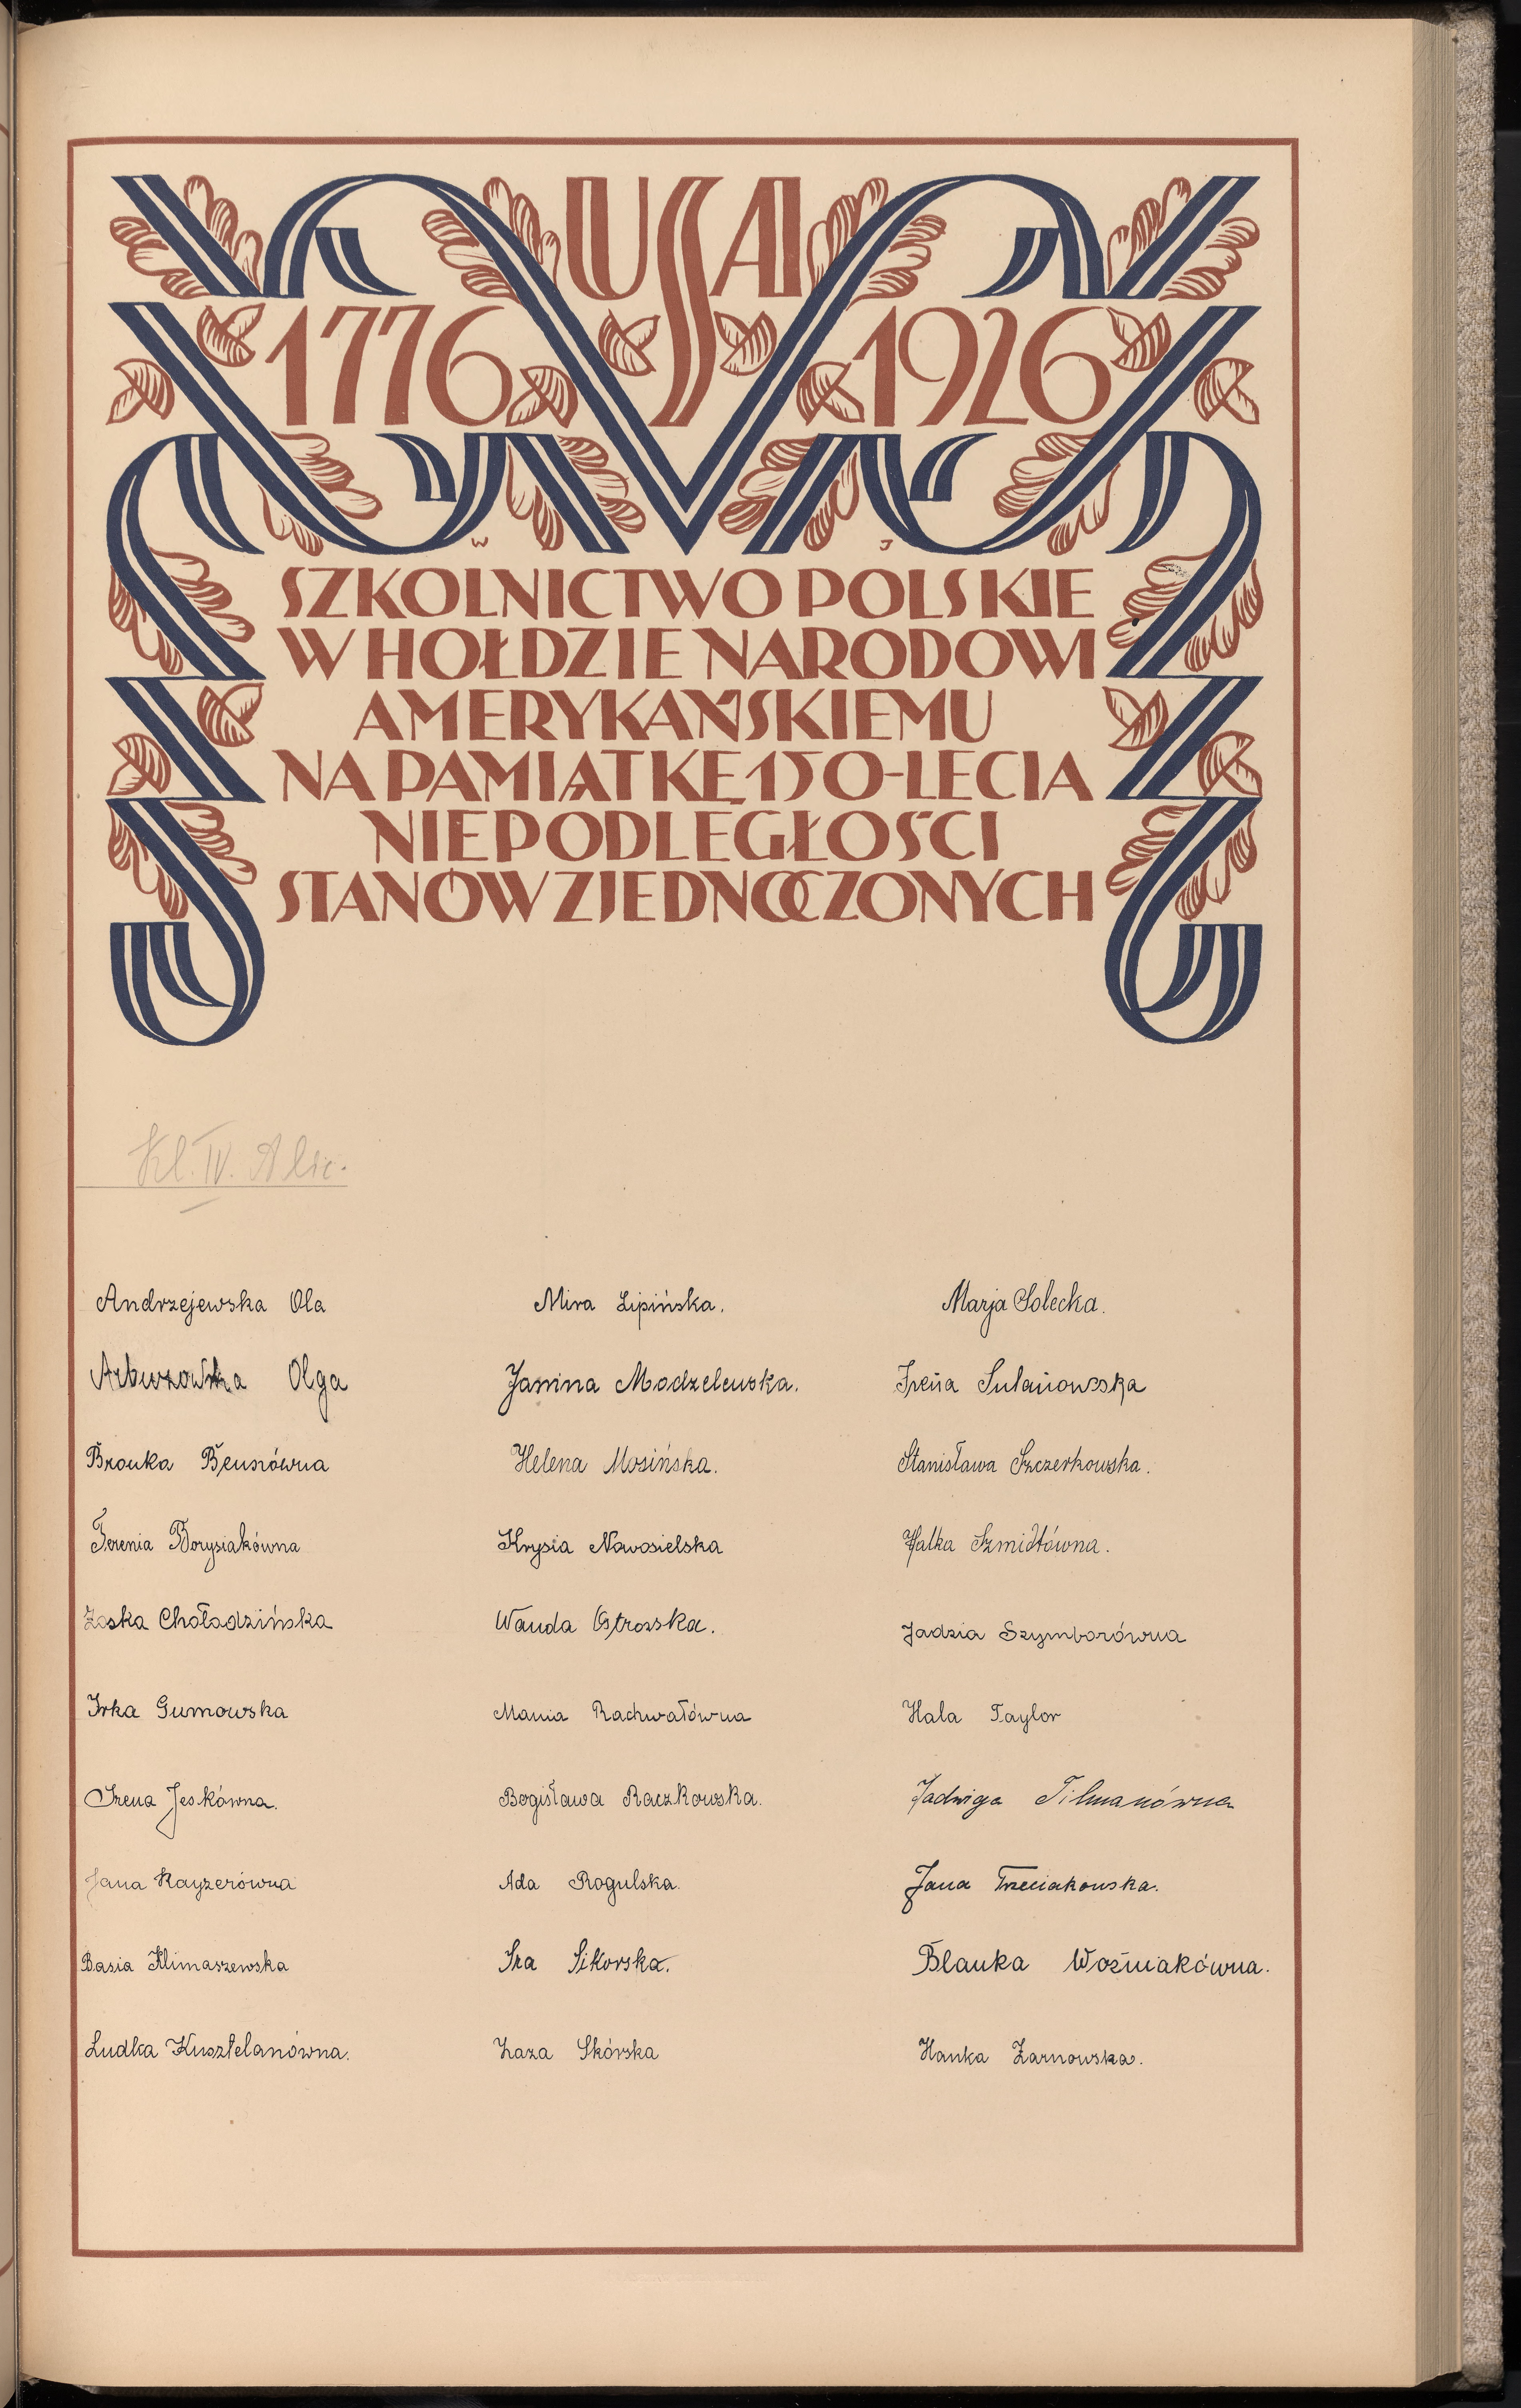 USA
1776 1926
W J
SZKOLNICTWO POLSKIE
W HOŁDZIE NARODOWI
AMERYKAŃSKIEMU
NA PAMIĄTKĘ 150-LECIA
NIEPODLEGŁOŚCI
STANÓW ZJEDNOCZONYCH
Kl. IV. A
Andrzejewska Ola
Arbuzowska Olga
Bronka Bensówna
Terenia Borysiakówna
Zośka Choładzińska
Irka Gumowska
Irena Jeskówna.
Jana Kayzerówna
Basia Klimaszewska
Ludka Kusztelanówna.
Mira Lipińska.
Janina Modzelewska.
Helena Mosińska.
Krysia Nowosielska
Wanda Ostrowska.
Mania Rachwałówna
Bogisława Raczkowska.
Ada Rogulska.
Ira Sikorska.
Zaza Skórska
Marja Solecka.
Irena Sulanowska
Stanisława Szczerkowska.
Halka Szmidtówna.
Jadzia Szymborówna
Hala Taylor
Jadwiga Tilmanówna
Jana Trzeciakowska.
Blanka Woźniakówna.
Hanka Żarnowska.